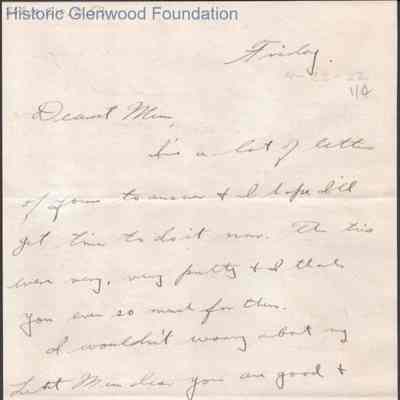 Historic Glenwood Foundation
Friday.
Dearest Mim,
a lot of letters
of yours to answer & I hope I'll
get time to do it now. The ties
were very, very pretty & I thank
you ever so much for them.
I wouldn't worry about my
Mim dear you are good &